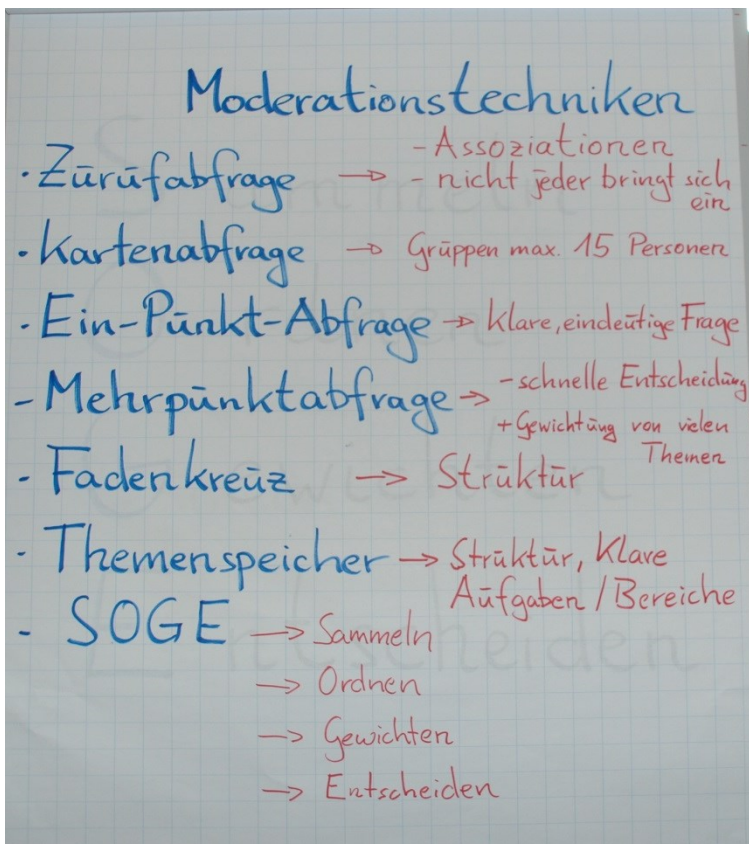 Moderationstechniken
- Assoziationen
· Zurufabfrage → - nicht jeder bringt sich
ein
· Kartenabfrage → Gruppen max. 15 Personen
· Ein-Punkt-Abfrage → klare, eindeutige Frage
- Mehrpunktabfrage → - schnelle Entscheidung
+ Gewichtung von vielen
Themen
- Fadenkreuz → Struktur
· Themenspeicher → Struktur, Klare
Aufgaben / Bereiche
- SOGE → Sammeln
→ Ordnen
→ Gewichten
→ Entscheiden
Sammeln
Ordnen
Gewichten
Entscheiden